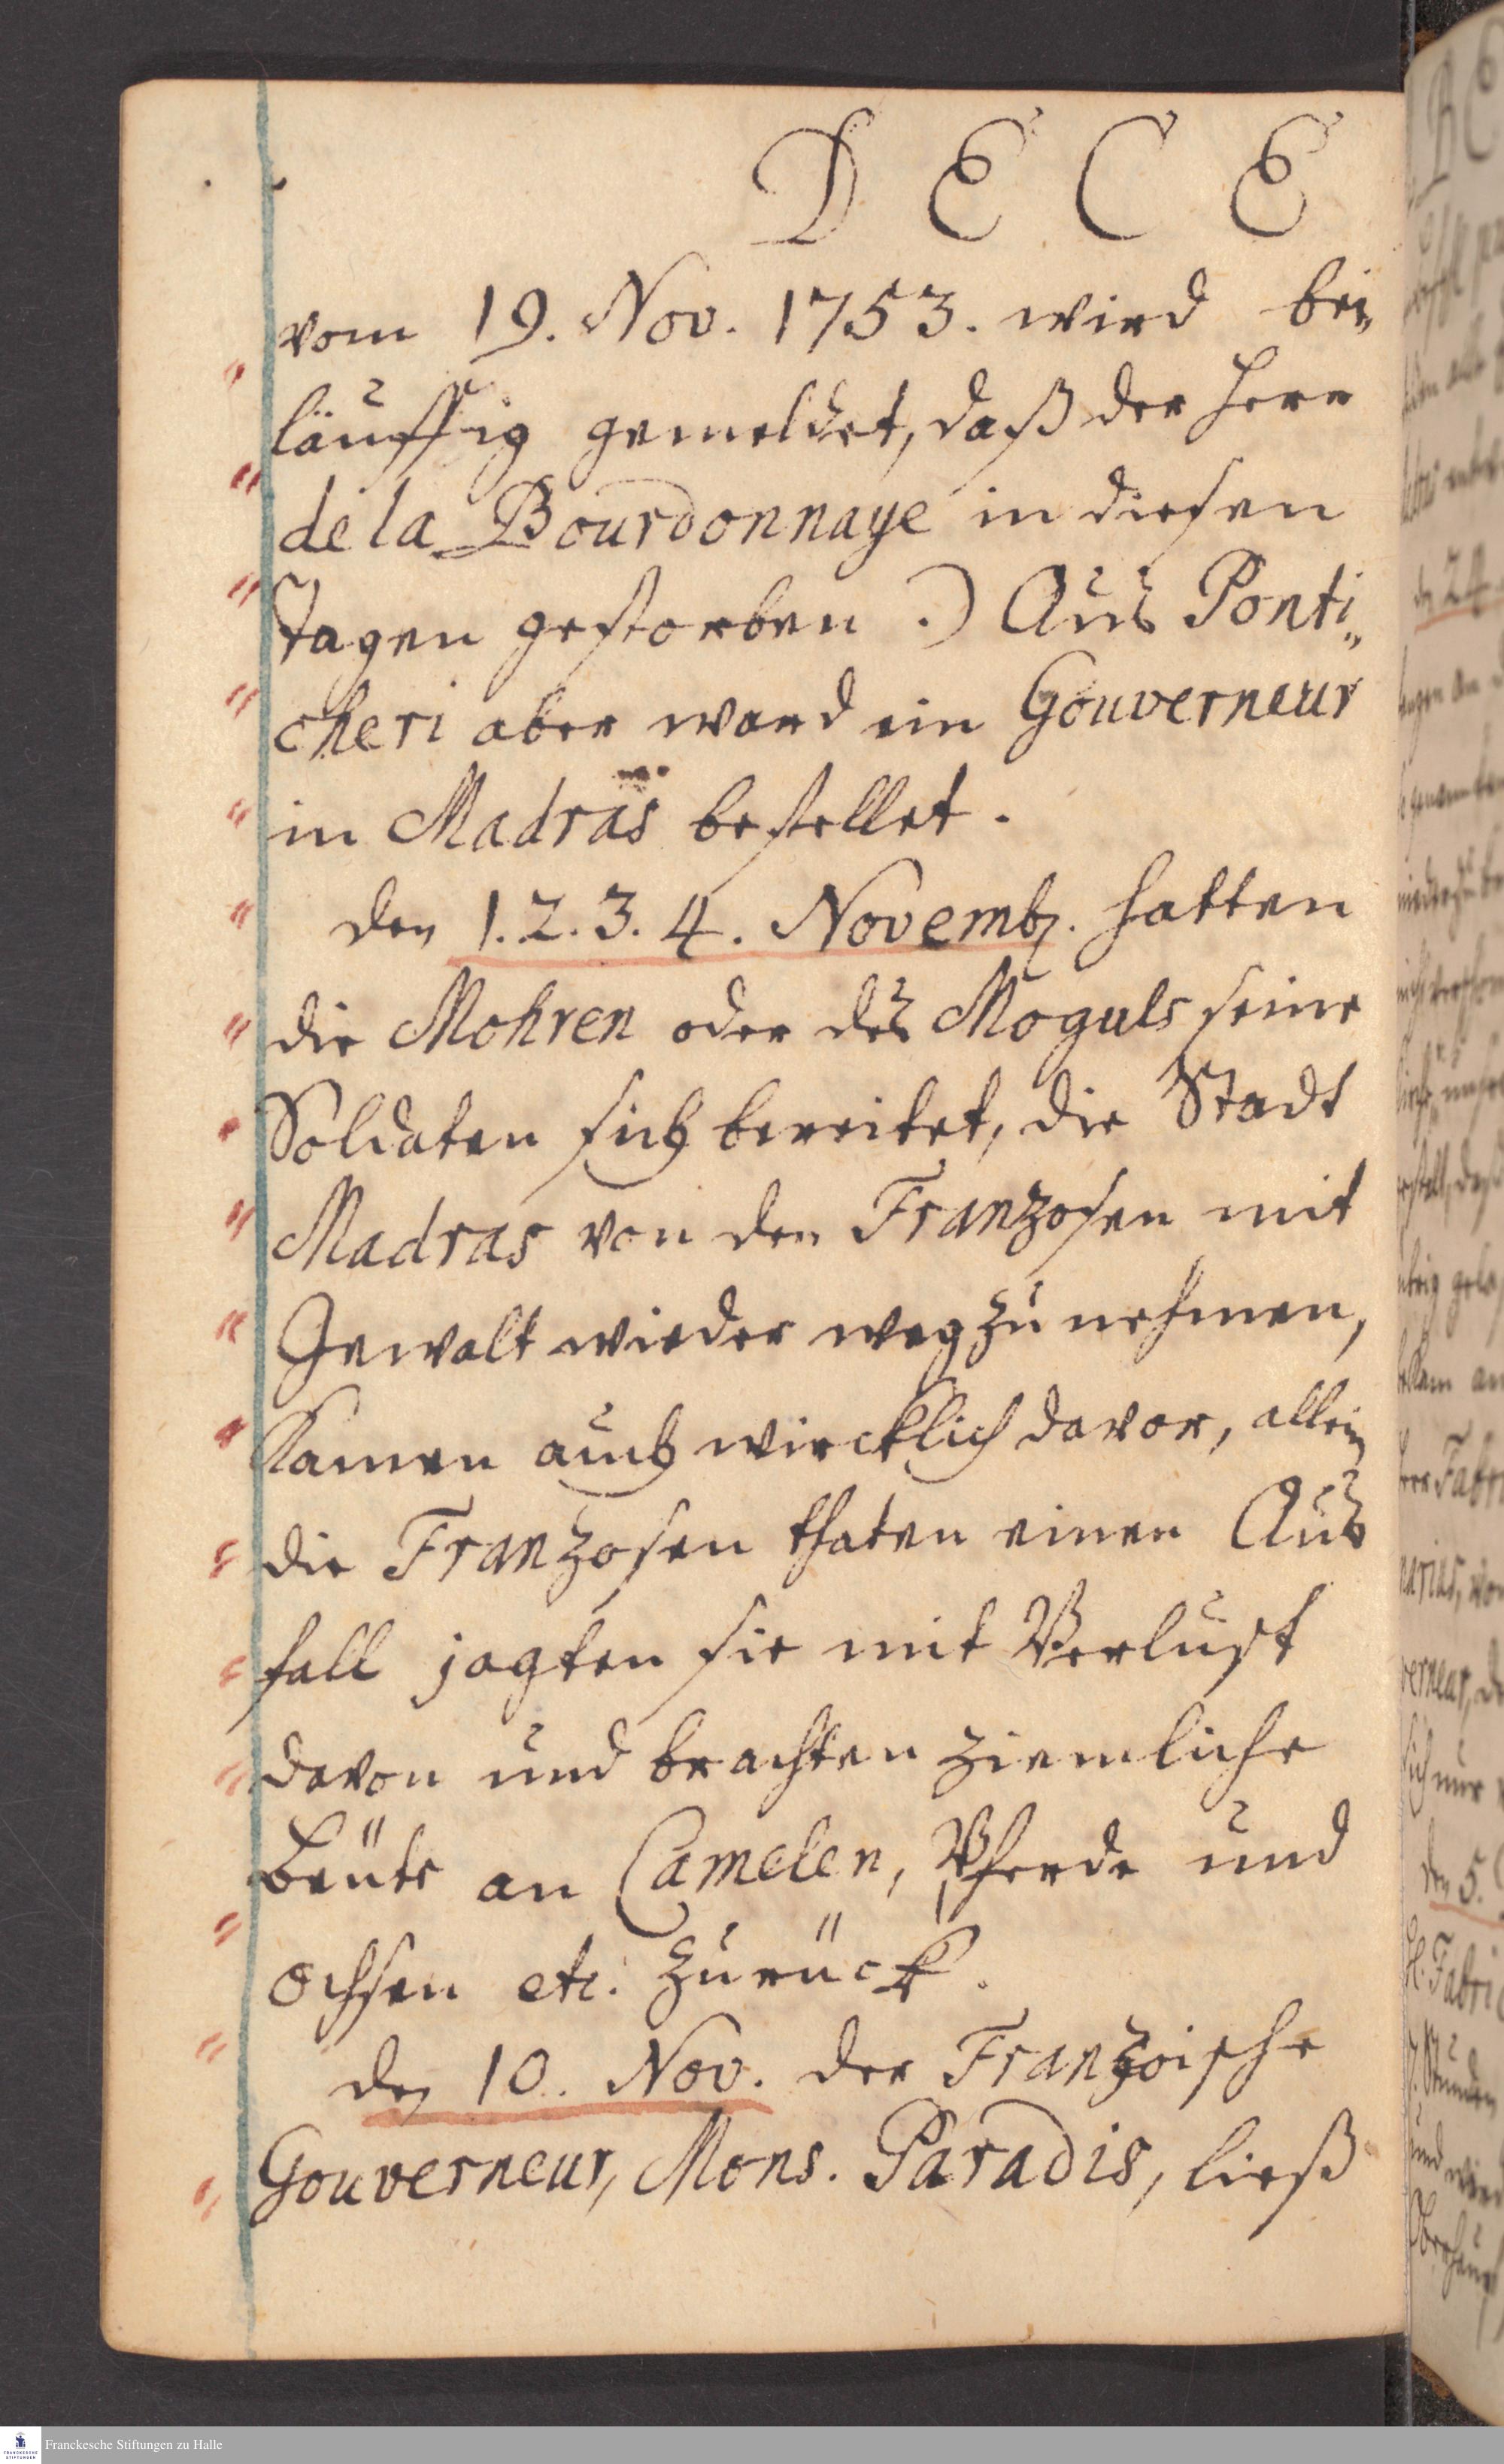 D E C E
vom 19. Nov. 1753. wird bei„
läuffig gemeldet, daß der Herr
de la Bourdonnaye in diesen
tagen gestorben .) Aus Ponti„
cheri aber ward ein Gouverneur
in Madras bestellet.
den 1. 2. 3. 4. Novemb. hatten
die Mohren oder des Moguls seine
Soldaten sich bereitet, die Stadt
Madras von den Franzosen mit
Gewalt wieder weg zu nehmen,
Kamen auch wircklich davor, allein
die Franzosen thaten einen Aus
fall jagten sie mit Verlust
davon und brachten ziemliche
Beüte an Camelen, Pferde und
ochsen etc. zurück.
den 10. Nov. der Franzoische
Gouverneur, Mons. Paradis, ließ
Franckesche Stiftungen zu Halle